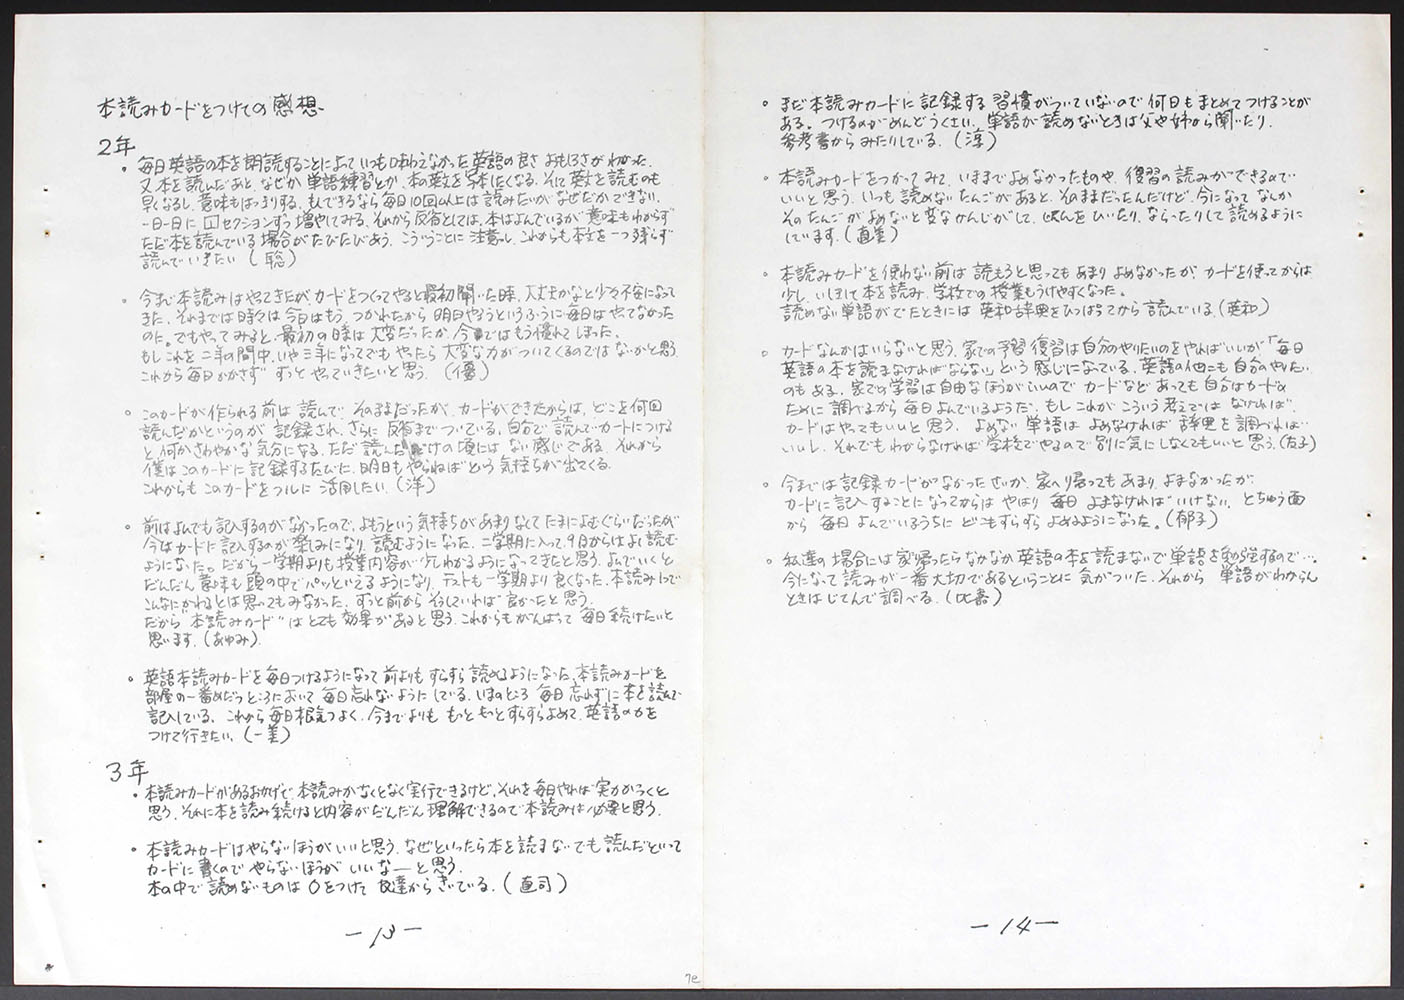 本読みカードをつけての感想
2年
。毎日英語の本を朗読することによって いつも味わえなかった英語の良さ おもしろさがわかった。
又本を読んだあと、なぜか単語練習とか、本の英文を写本したくなる。そして英文を読むのも
早くなるし、意味もはっきりする。もしできるなら毎日10回以上は読みたいが なぜだかできない。
一日一日に 1セクションずつ増やしてみる。それから反省としては、本はよんでいるが意味もわからず
ただ本を読んでいる場合がたびたびあう。こういうことに注意し、これからも本文を一つ残らず
読んでいきたい (聡)
。今まで本読みはやってきたがカードをつくってやると最初聞いた時、大丈夫かなと少々不安になって
きた。それまでは時々は今日はもう、つかれたから明日やろうというふうに毎日はやってなかった
のに。でもやってみると、最初の日時は大変だったが、今ではもう慣れてしまった。
もしこれを二年の間中、いや三年になってでも やったら大変な力がついてくるのでは ないかと思う。
これから毎日かかさず ずっとやっていきたいと思う。(優)
。このカードが作られる前は読んで そのままだったが、カードができたからは、どこを何回
読んだかというのが記録され、さらに反省までついている。自分で読んでカードにつける
と何かさわやかな気分になる。ただ読んだだけの頃にはない感じである。それから
僕はこのカードに記録するたびに、明日もやらねばという気持ちが出てくる。
これからもこのカードをフルに活用したい。(洋)
。前はよんでも記入するのがなかったので、よもうという気持ちがあまりなくてたまによむぐらいだったが
今はカードに記入するのが楽しみになり読むようになった。二学期に入って、9月からはよく読む
ようになった。だから一学期よりも授業内容が少しわかるようになってきたと思う。よんでいくと
だんだん意味も頭の中でパッといえるようになり、テストも一学期より良くなった。本読み1つで
こんなにかわるとは思ってもみなかった。ずっと前からそうしていれば良かったと思う。
だから"本読みカード"はとても効果があると思う。これからもがんばって毎日続けたいと
思います。(あゆみ)
。英語本読みカードを毎日つけるようになって前よりもすらすら読めるようになった。本読みカードを
部屋の一番めだつところにおいて毎日忘れないようにしている。いまのところ毎日忘れずに本を読んで
記入している。これから毎日根気つよく、今までよりももっともっとすらすらよめて、英語の力を
つけて行きたい。(一美)
3年
。本読みカードがあるおかげで本読みがなんとなく実行できるけど、それを毎日やれば実力がつくと
思う。それに本を読み続けると内容がだんだん理解できるので本読みは必要と思う。
。本読みカードはやらないほうがいいと思う。なぜといったら本を読まないでも読んだといって
カードに書くのでやらないほうがいいなーと思う。
本の中で読めないものは○をつけて友達からきいている。(直司)
-13-
。まだ本読みカードに記録する習慣がついていないので何日もまとめてつけることが
ある。つけるのがめんどうくさい。単語が読めないときは父や姉から聞いたり、
参考書からみたりしている。(淳)
。本読みカードをつかってみて、いままでよめなかったものや、復習の読みができるので
いいと思う。いつも読めないたんごがあると、そのままだったんだけど、今になってなんか
そのたんごがよめないと変なかんじがして じてんをひいたり、ならったりして読めるように
しています。(直美)
。本読みカードを使わない前は読もうと思ってもあまりよめなかったが、カードを使ってからは
少しいしきして本を読み、学校での授業もうけやすくなった。
読めない単語がでたときには英和辞典をひっぱってから読んでいる。(英和)
。カードなんかはいらないと思う。家での予習復習は自分のやりたいのをやればいいが「毎日
英語の本を読まなければならない」という感じになっている。英語の他にも自分のやりたい
のもある。家での学習は自由なほうがいいのでカードなどあっても自分はカードの
ために調べるから毎日よんでいるようだ。もしこれがこういう考えではなければ、
カードはやってもいいと思う。よめない単語はよめなければ辞典を調べれば
いいし、それでもわからなければ学校でやるので別に気にしなくてもいいと思う。(友子)
。今までは記録カードがなかったせいか、家へ帰ってもあまりよまなかったが
カードに記入することになってからはやはり毎日よまなければいけない。とちゅう面
から毎日よんでいるうちにどこもすらすらよめるようになった。(郁子)
。私達の場合には家帰ったらなかなか英語の本を読まないで単語を勉強するので…。
今になって読みが一番大切であるということに気がついた。それから 単語がわからん
ときはじてんで調べる。
-14-